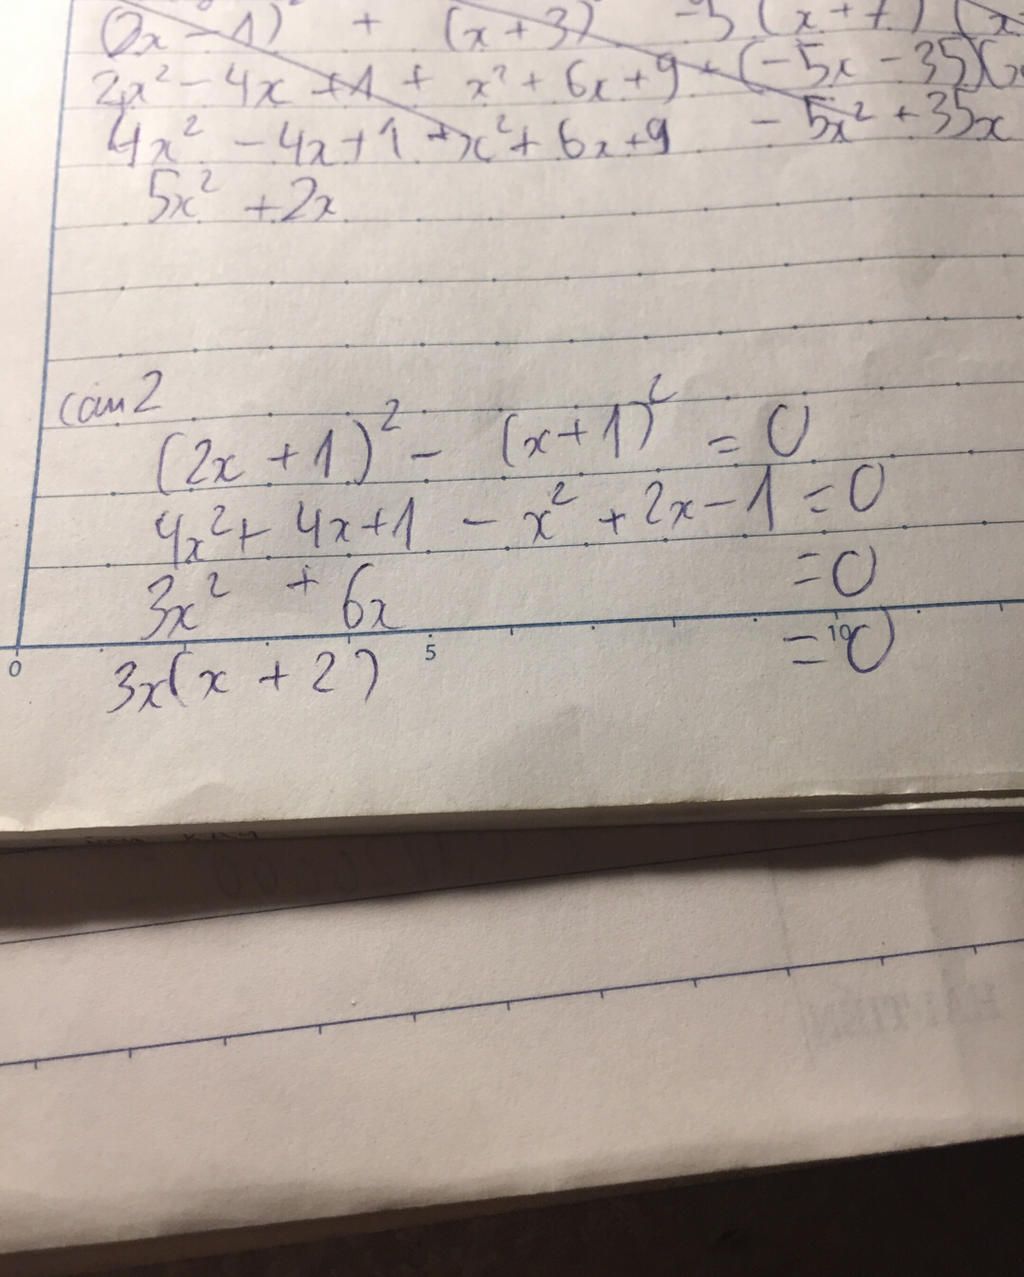 (2x - 1)² + (x + 3)² - 5 (x + 7) (x
2x² - 4x + 1 + x² + 6x + 9 + (-5x - 35)(
4x² - 4x + 1 + x² + 6x + 9 - 5x² + 35x
5x² + 2x
câu 2
(2x + 1)² - (x + 1)² = 0
4x² + 4x + 1 - x² + 2x - 1 = 0
3x² + 6x = 0
0 5 10
3x(x + 2) = 0
HẢI TIẾN